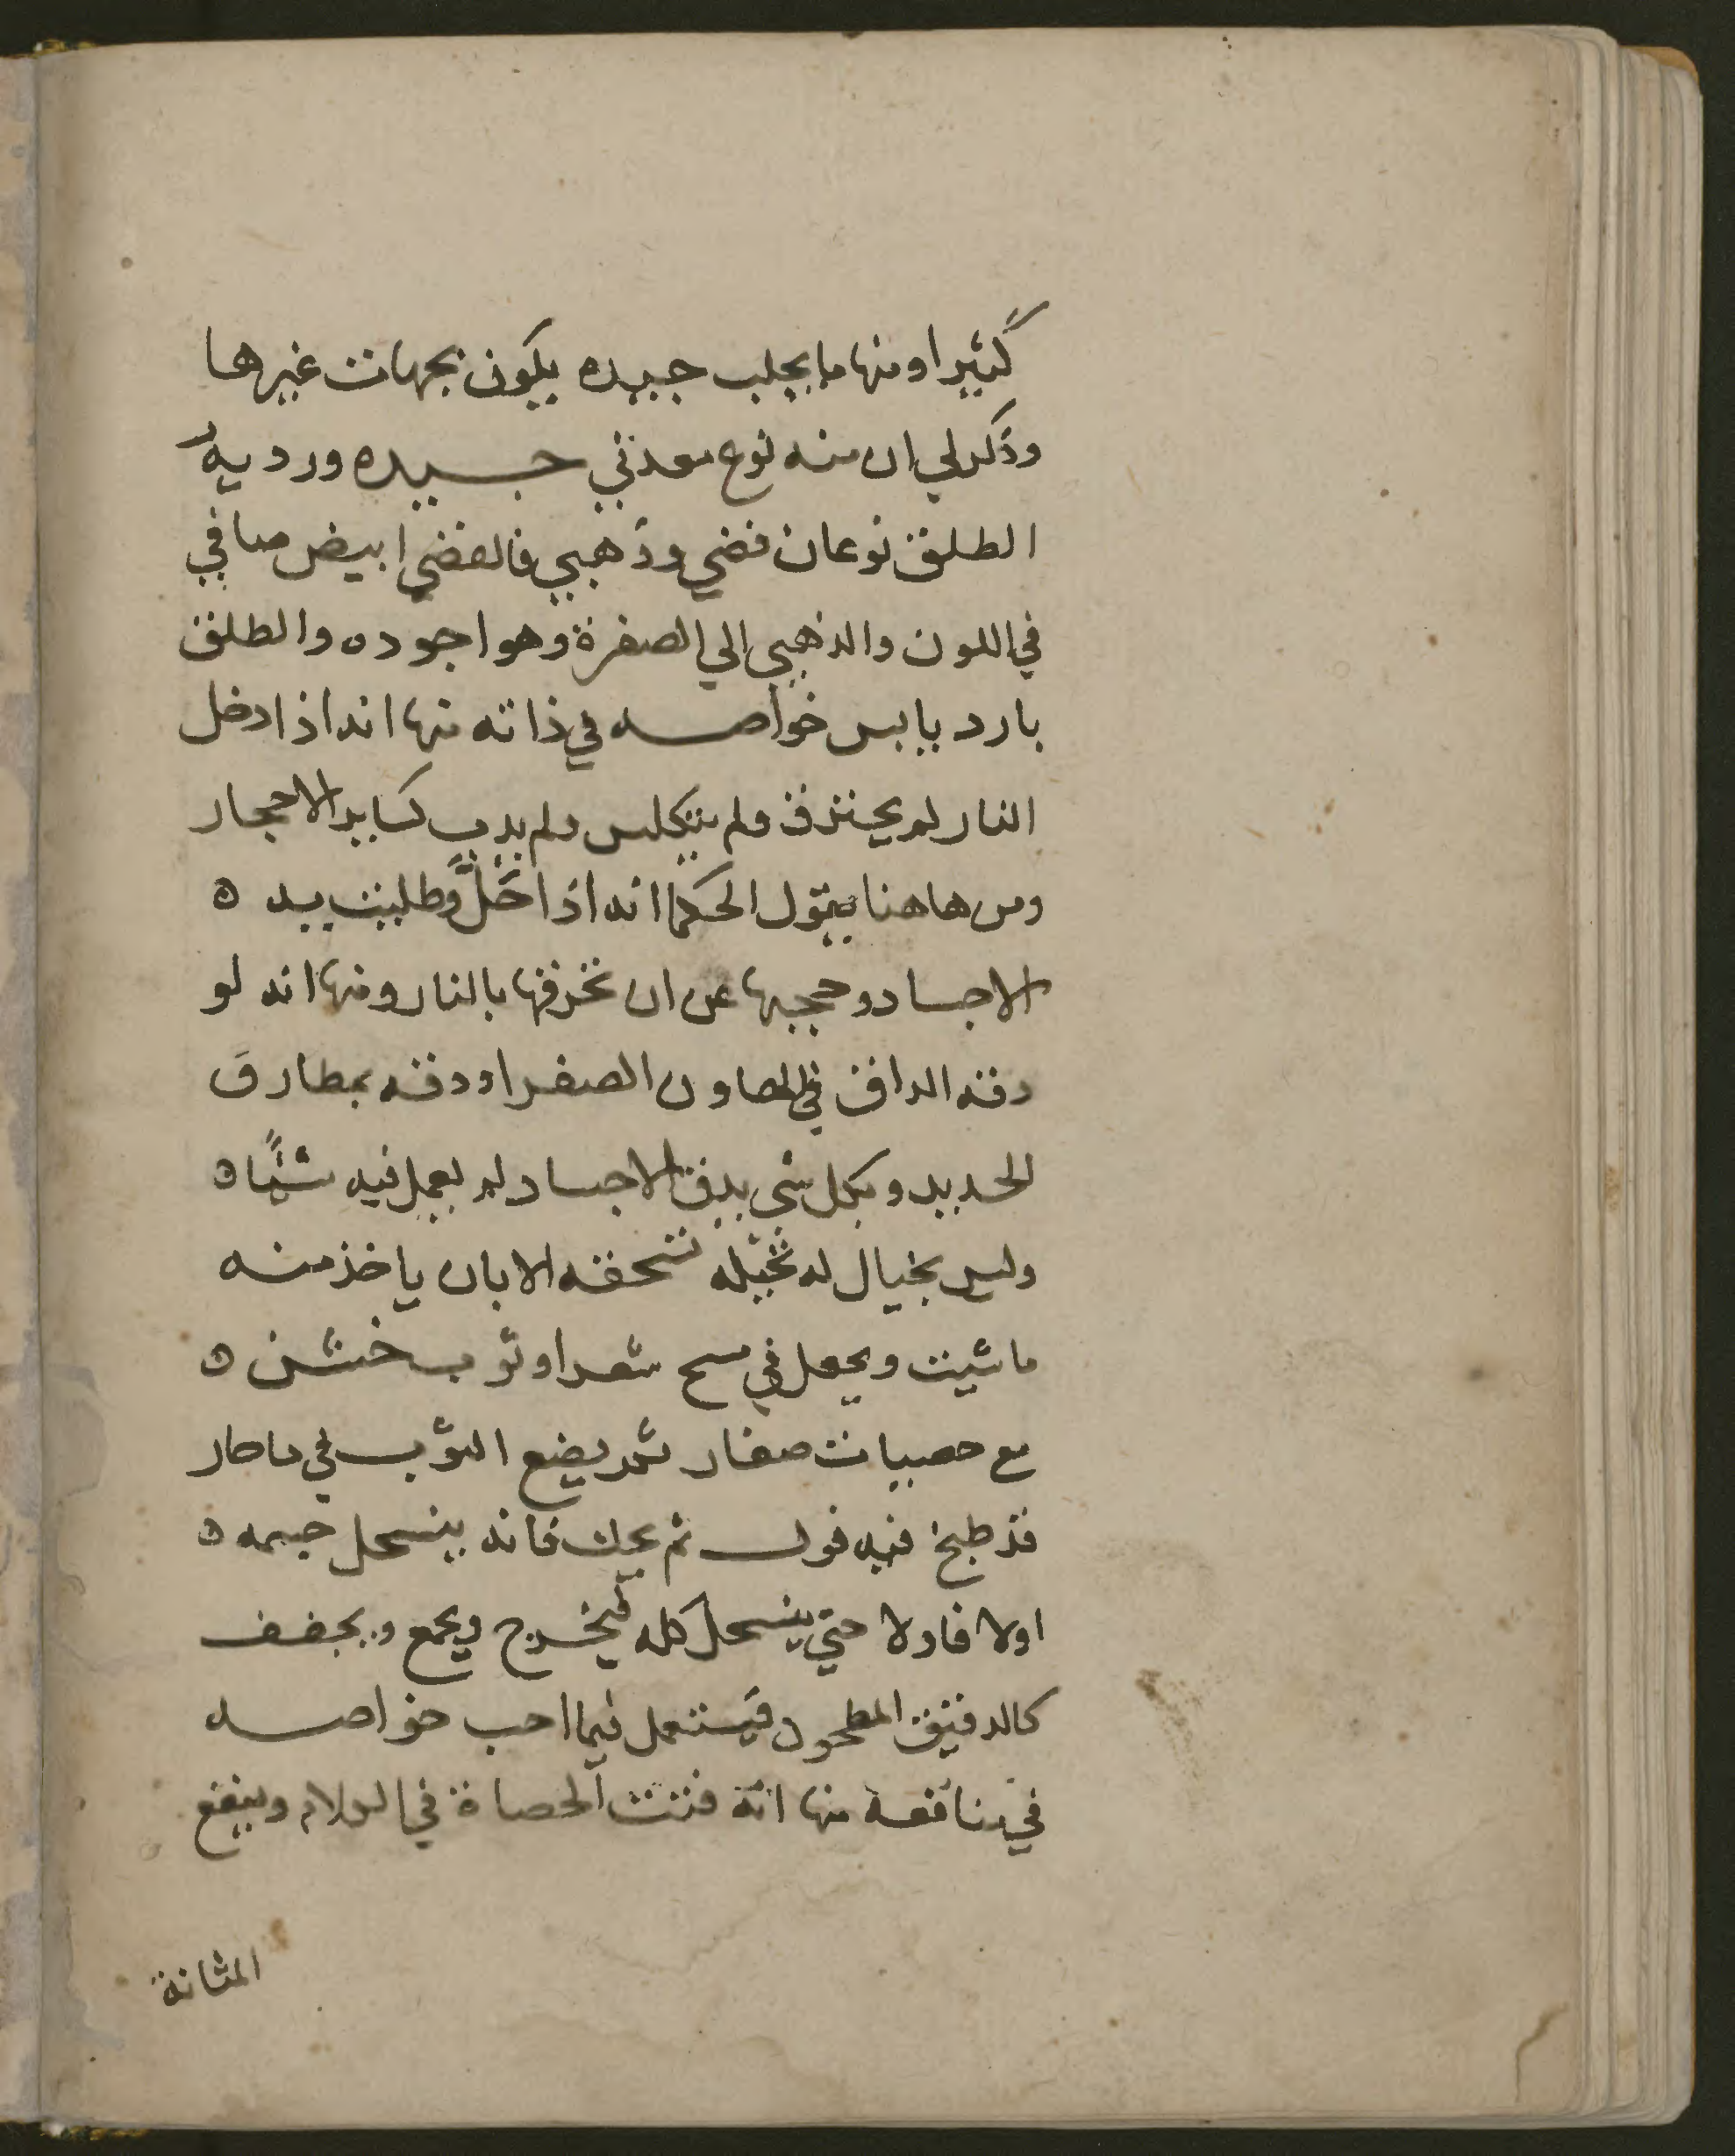 كثيرا ومنها ما يجلب جيده يكون بجهات غيرها
وذكر لي ان منه نوع معدني جيده ورديه
الطلق نوعان فضي وذهبي فالفضي ابيض صافي
في اللون والذهبي الي الصفرة وهو اجوده والطلق
بارد يابس خواصه في ذاته منها انه اذا دخل
النار لم يحترق ولم يتكلس ولم يدب كساير الاحجار
ومن هاهنا يقول الحكما انه اذا حَلّ وطليت بيده
الاجساد وحجبها عن ان تحرقها بالنار ومنها انه لو
دقه الداق في الهاون الصفر او دقه بمطارق
الحديد وبكل شي يدق الاجساد لم يعمل فيه شئًا ه
وليس بخيال له تحيله تسحقه الا بان ياخذ منه
ما شيت ويجعل في مسح شعر او ثوب خشن ه
مع حصيات صغار ثم يضع الثوب في ما حار
قد طبخ فيه فول ثم يحك فانه ينسحل جسمه ه
اولا فاولا حتي ينسحل كله فيخرج ويجمع ويجفف
كالدقيق المطحون فيستعمل فيما احب خواصه
في منافعه منها انه فتت الحصاة في وينفع
المثانة